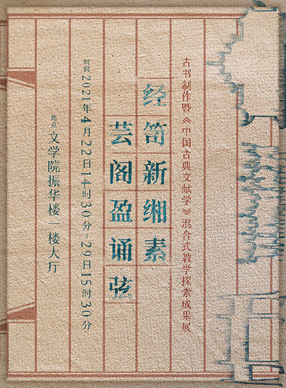 古书制作暨《中国古典文献学》混合式教学探索成果展
经笥新缃素
芸阁盈诵弦
时间 2021年4月22日14时30分-29日15时30分
地点 文学院振华楼 楼大厅